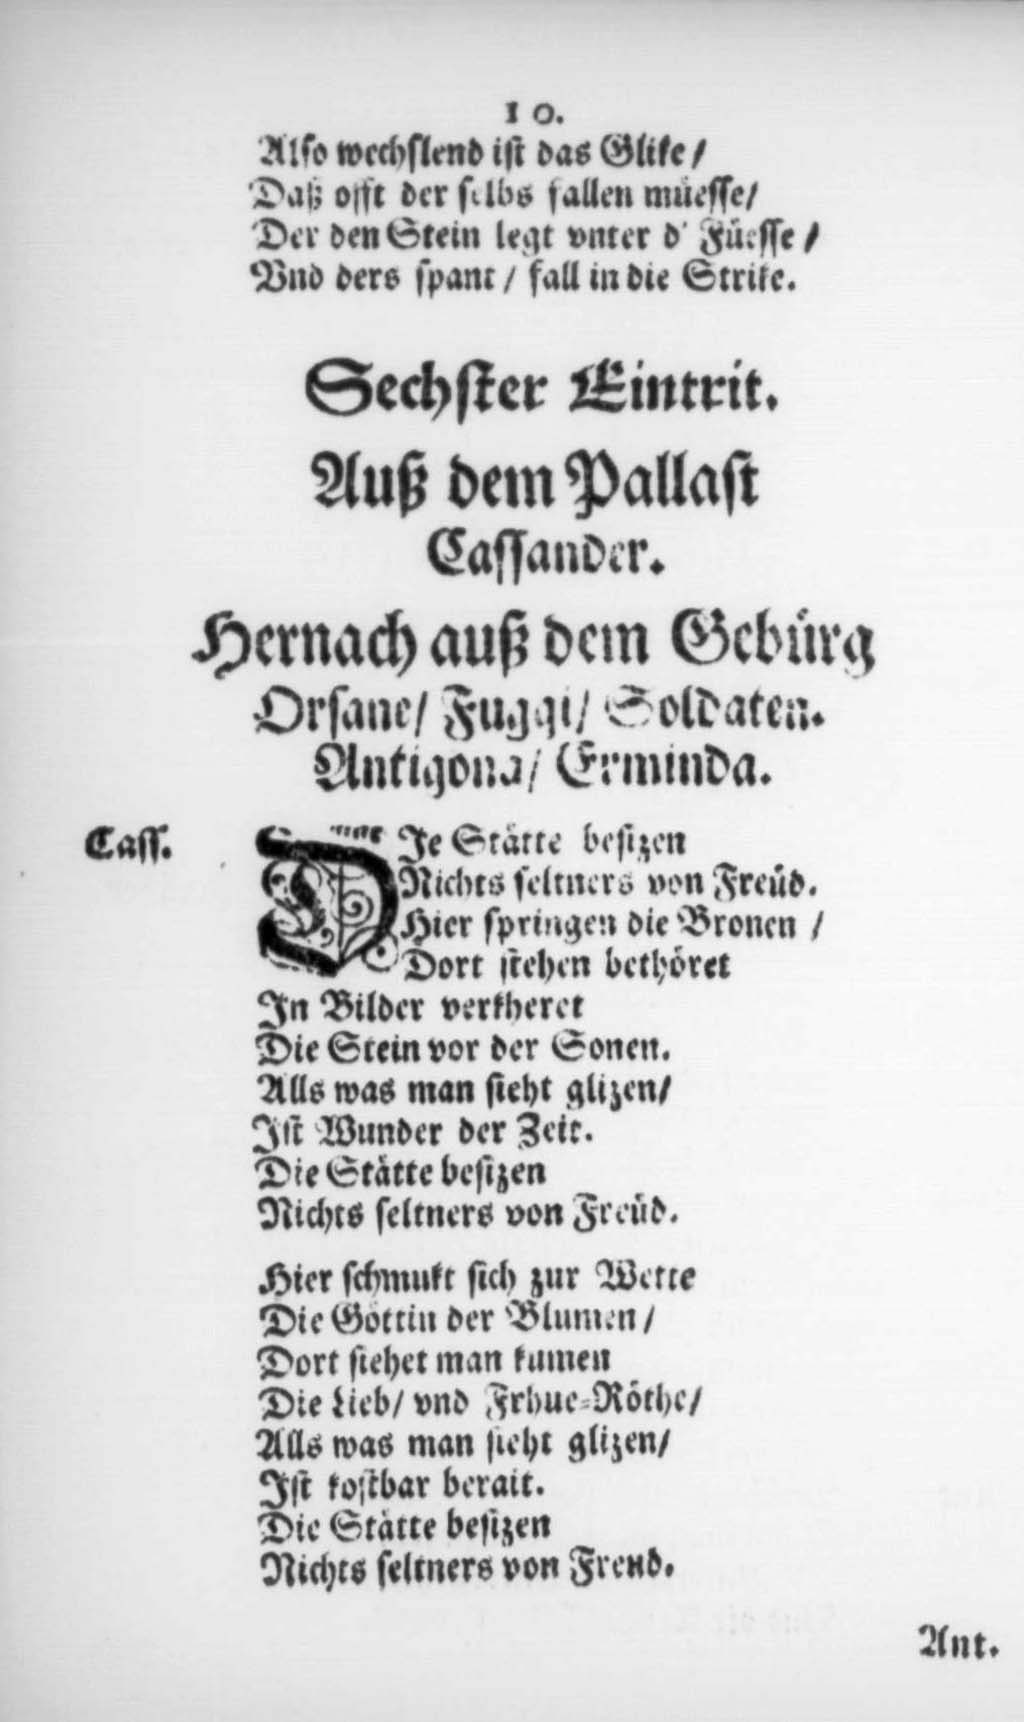 10.
Also wechslend ist das Glike /
Daß offt der selbs fallen müesse /
Der den Stein legt vnter d' Füesse /
Vnd ders spant / fall in die Strike.
Sechster Eintrit.
Auß dem Pallast
Cassander.
Hernach auß dem Gebürg
Orsane / Fuggi / Soldaten.
Antigona / Erminda.
Cass. DIe Stätte besizen
Nichts seltners von Freüd.
Hier springen die Bronen /
Dort stehen bethöret
In Bilder verkheret
Die Stein vor der Sonen.
Alls was man sieht glizen /
Ist Wunder der Zeit.
Die Stätte besizen
Nichts seltners von Freüd.
Hier schmukt sich zur Wette
Die Göttin der Blumen /
Dort siehet man kumen
Die Lieb / vnd Frhue-Röthe /
Alls was man sieht glizen /
Ist kostbar berait.
Die Stätte besizen
Nichts seltners von Freud.
Ant.